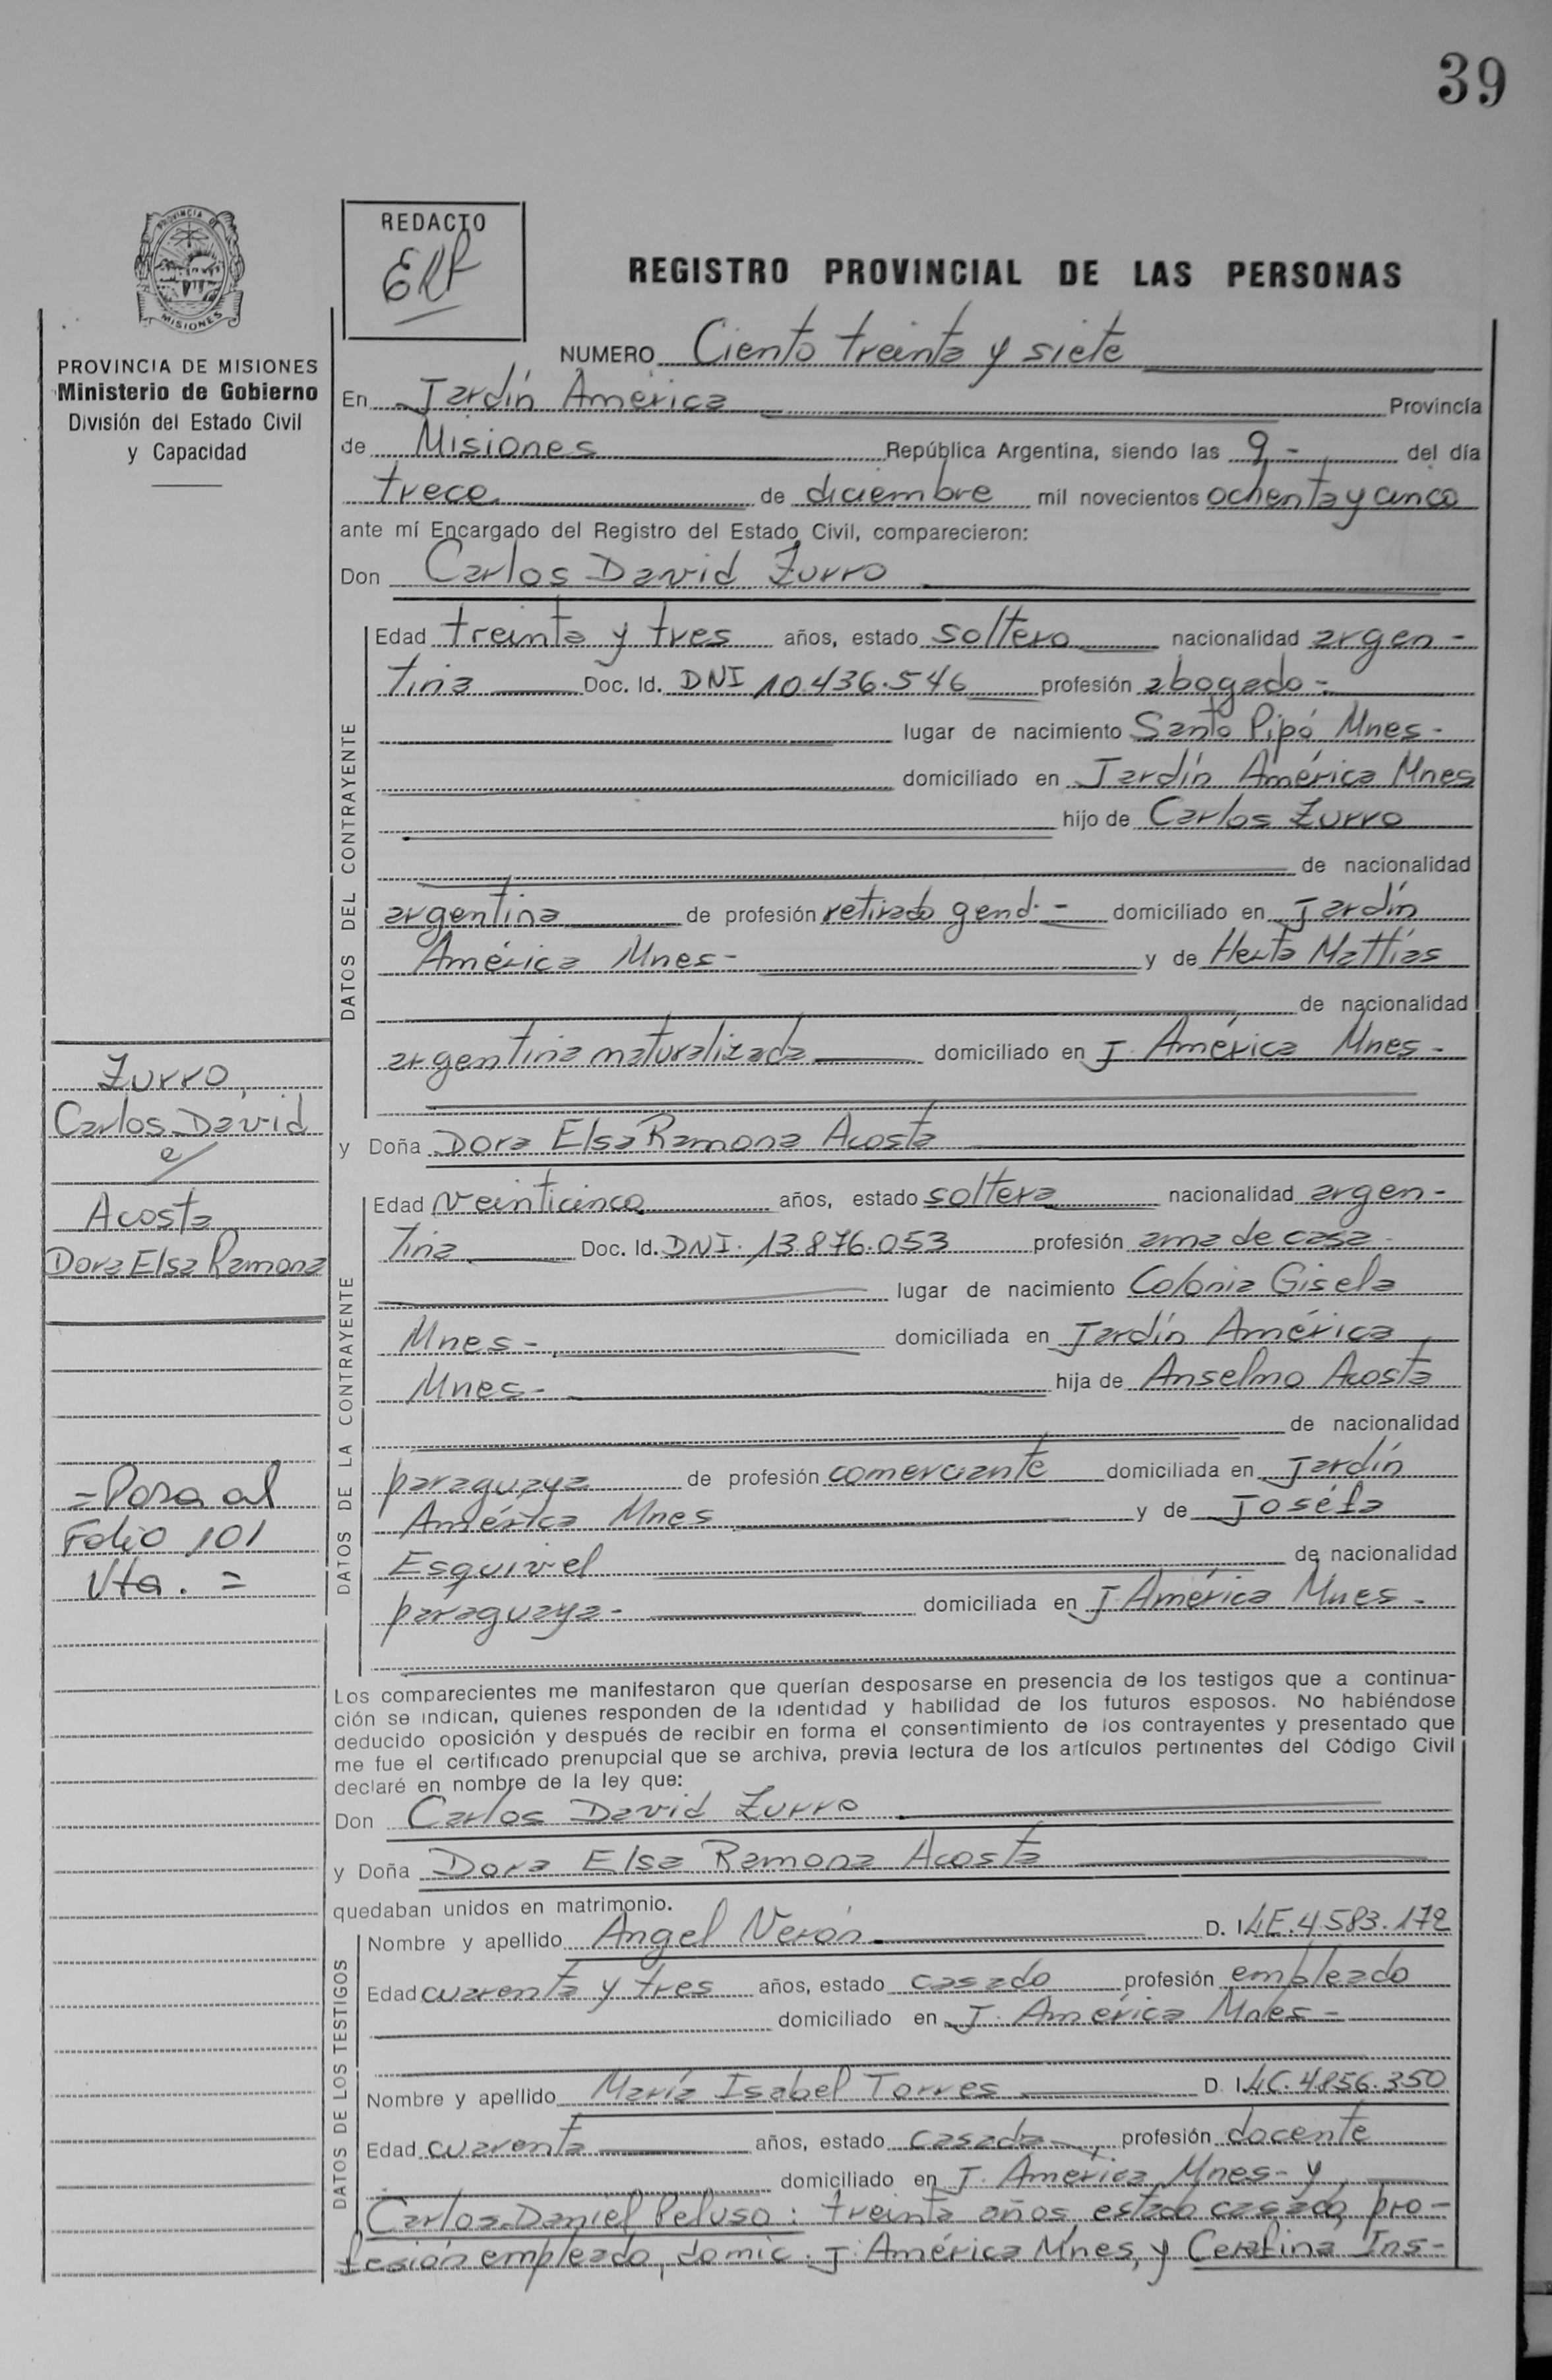 39
PROVINCIA DE
MISIONES
REDACTO
REGISTRO PROVINCIAL DE LAS PERSONAS
PROVINCIA DE MISIONES
Ministerio de Gobierno
División del Estado Civil
y Capacidad
NUMERO Ciento treinta y siete
En Jardín América Provincia
de Misiones República Argentina, siendo las 9 - del día
trece de diciembre mil novecientos ochenta y cinco
ante mí Encargado del Registro del Estado Civil, comparecieron:
Don Carlos David Zurro
DATOS DEL CONTRAYENTE
Edad treinta y tres años, estado soltero nacionalidad argen-
tina Doc. Id. DNI 10.436.546 profesión abogado -
lugar de nacimiento Santo Pipó Mnes -
domiciliado en Jardín América Mnes
hijo de Carlos Zurro
de nacionalidad
argentina de profesión retirado gend. - domiciliado en Jardín
América Mnes - y de Herta Mattías
de nacionalidad
argentina naturalizada domiciliado en J. América Mnes -
Zurro,
Carlos David
c/
Acosta
Dora Elsa Ramona
y Doña Dora Elsa Ramona Acosta
DATOS DE LA CONTRAYENTE
Edad veinticinco años, estado soltera nacionalidad argen-
tina Doc. Id. DNI. 13.876.053 profesión ama de casa -
lugar de nacimiento Colonia Gisela
Mnes - domiciliada en Jardín América
Mnes - hija de Anselmo Acosta
de nacionalidad
paraguaya de profesión comerciante domiciliada en Jardín
América Mnes y de Joséfa
Esquivel de nacionalidad
paraguaya - domiciliada en J. América Mnes -
= Pasa al
Folio 101
Vta. =
Los comparecientes me manifestaron que querían desposarse en presencia de los testigos que a continua-
ción se indican, quienes responden de la identidad y habilidad de los futuros esposos. No habiéndose
deducido oposición y después de recibir en forma el consentimiento de los contrayentes y presentado que
me fue el certificado prenupcial que se archiva, previa lectura de los artículos pertinentes del Código Civil
declaré en nombre de la ley que:
Don Carlos David Zurro
y Doña Dora Elsa Ramona Acosta
quedaban unidos en matrimonio.
DATOS DE LOS TESTIGOS
Nombre y apellido Angel Verón D. I. LE. 4.583.172
Edad cuarenta y tres años, estado casado profesión empleado
domiciliado en J. América Mnes -
Nombre y apellido María Isabel Torres D. I. LC. 4.856.350
Edad cuarenta años, estado casada profesión docente
domiciliado en J. América Mnes - y
Carlos Daniel Peluso: treinta años, estado casado, pro-
fesión empleado, domic. J. América Mnes, y Cerafina Ins-